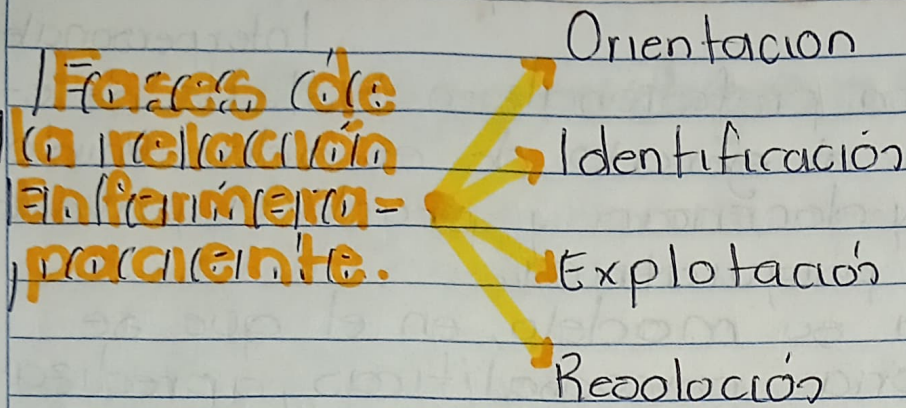 Fases de
la relación
Enfermera-
paciente.
Orientacion
Identificación
Explotación
Resoloción